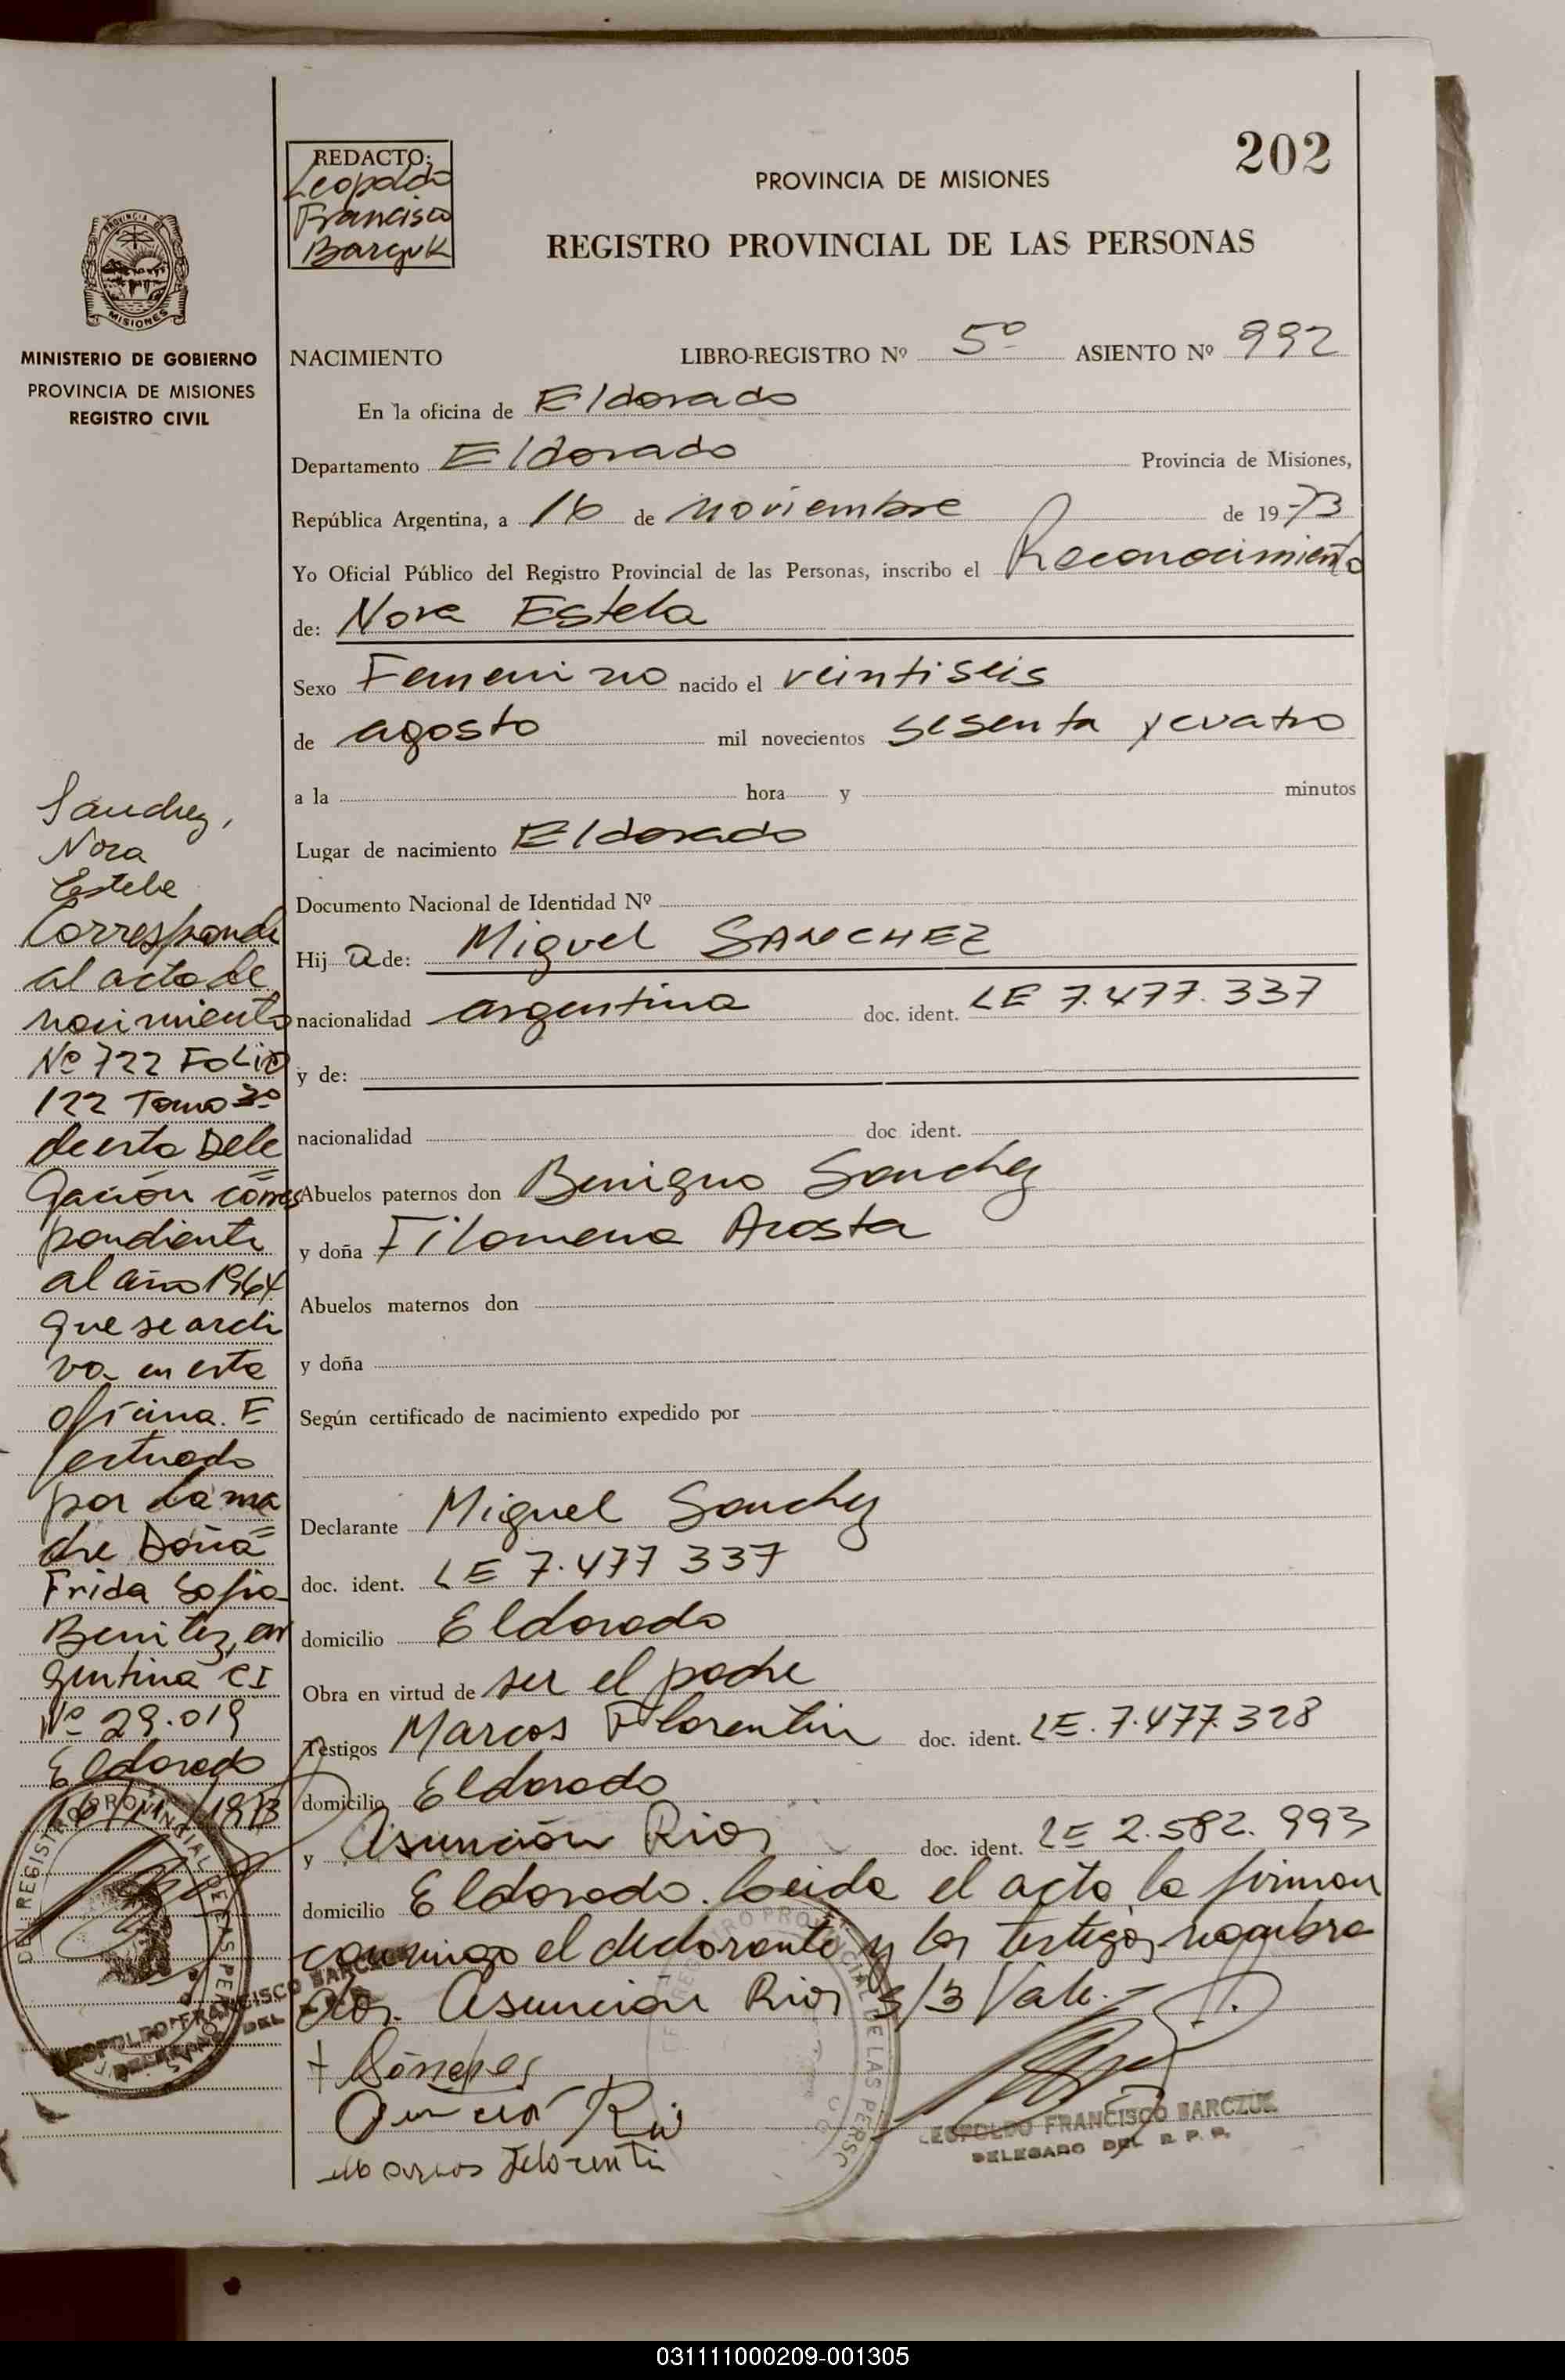 202
REDACTO:
Leopoldo
Francisco
Barczuk
PROVINCIA DE MISIONES
REGISTRO PROVINCIAL DE LAS PERSONAS
PROVINCIA DE
MISIONES
MINISTERIO DE GOBIERNO
PROVINCIA DE MISIONES
REGISTRO CIVIL
NACIMIENTO LIBRO-REGISTRO Nº 5º ASIENTO Nº 992
En la oficina de Eldorado
Departamento Eldorado Provincia de Misiones,
República Argentina, a 16 de noviembre de 1973
Yo Oficial Público del Registro Provincial de las Personas, inscribo el Reconocimiento
de: Nora Estela
Sexo Femenino nacido el veintiseis
de agosto mil novecientos sesenta y cuatro
a la hora y minutos
Lugar de nacimiento Eldorado
Documento Nacional de Identidad Nº
Hij a de: Miguel SANCHEZ
nacionalidad argentina doc. ident. LE 7.477.337
y de:
nacionalidad doc ident.
Abuelos paternos don Benigno Sanchez
y doña Filomena Acosta
Abuelos maternos don
y doña
Según certificado de nacimiento expedido por
Declarante Miguel Sanchez
doc. ident. LE 7.477 337
domicilio Eldorado
Obra en virtud de ser el padre
Testigos Marcos Florentin doc. ident. LE. 7.477.328
domicilio Eldorado
y Asunción Rios doc. ident. LE 2.582.993
domicilio Eldorado. Leida el acta la firman
conmigo el declarante y los testigos nombra
dos. Asunción Rios s/3 Vale.-
Sánches
Rio
Marcos Florenti
LEOPOLDO FRANCISCO BARCZUK
DELEGADO DEL R. P. P.
Sanchez,
Nora
Estela
Corresponde
al acta de
nacimiento
Nº 722 Folio
122 Tomo 3º
de esta Dele
gación corres
pondiente
al año 1964
que se archi
va en esta
oficina. E
fectuado
por la ma
dre Doña
Frida Sofia
Benitez, ar
gentina CI
Nº 29.019
Eldorado
16/11/1973
DEL REGISTRO PROVINCIAL DE LAS PERSONAS
LEOPOLDO FRANCISCO BARCZUK
DELEGADO DEL
REGISTRO PROVINCIAL DE LAS PERSO
031111000209-001305